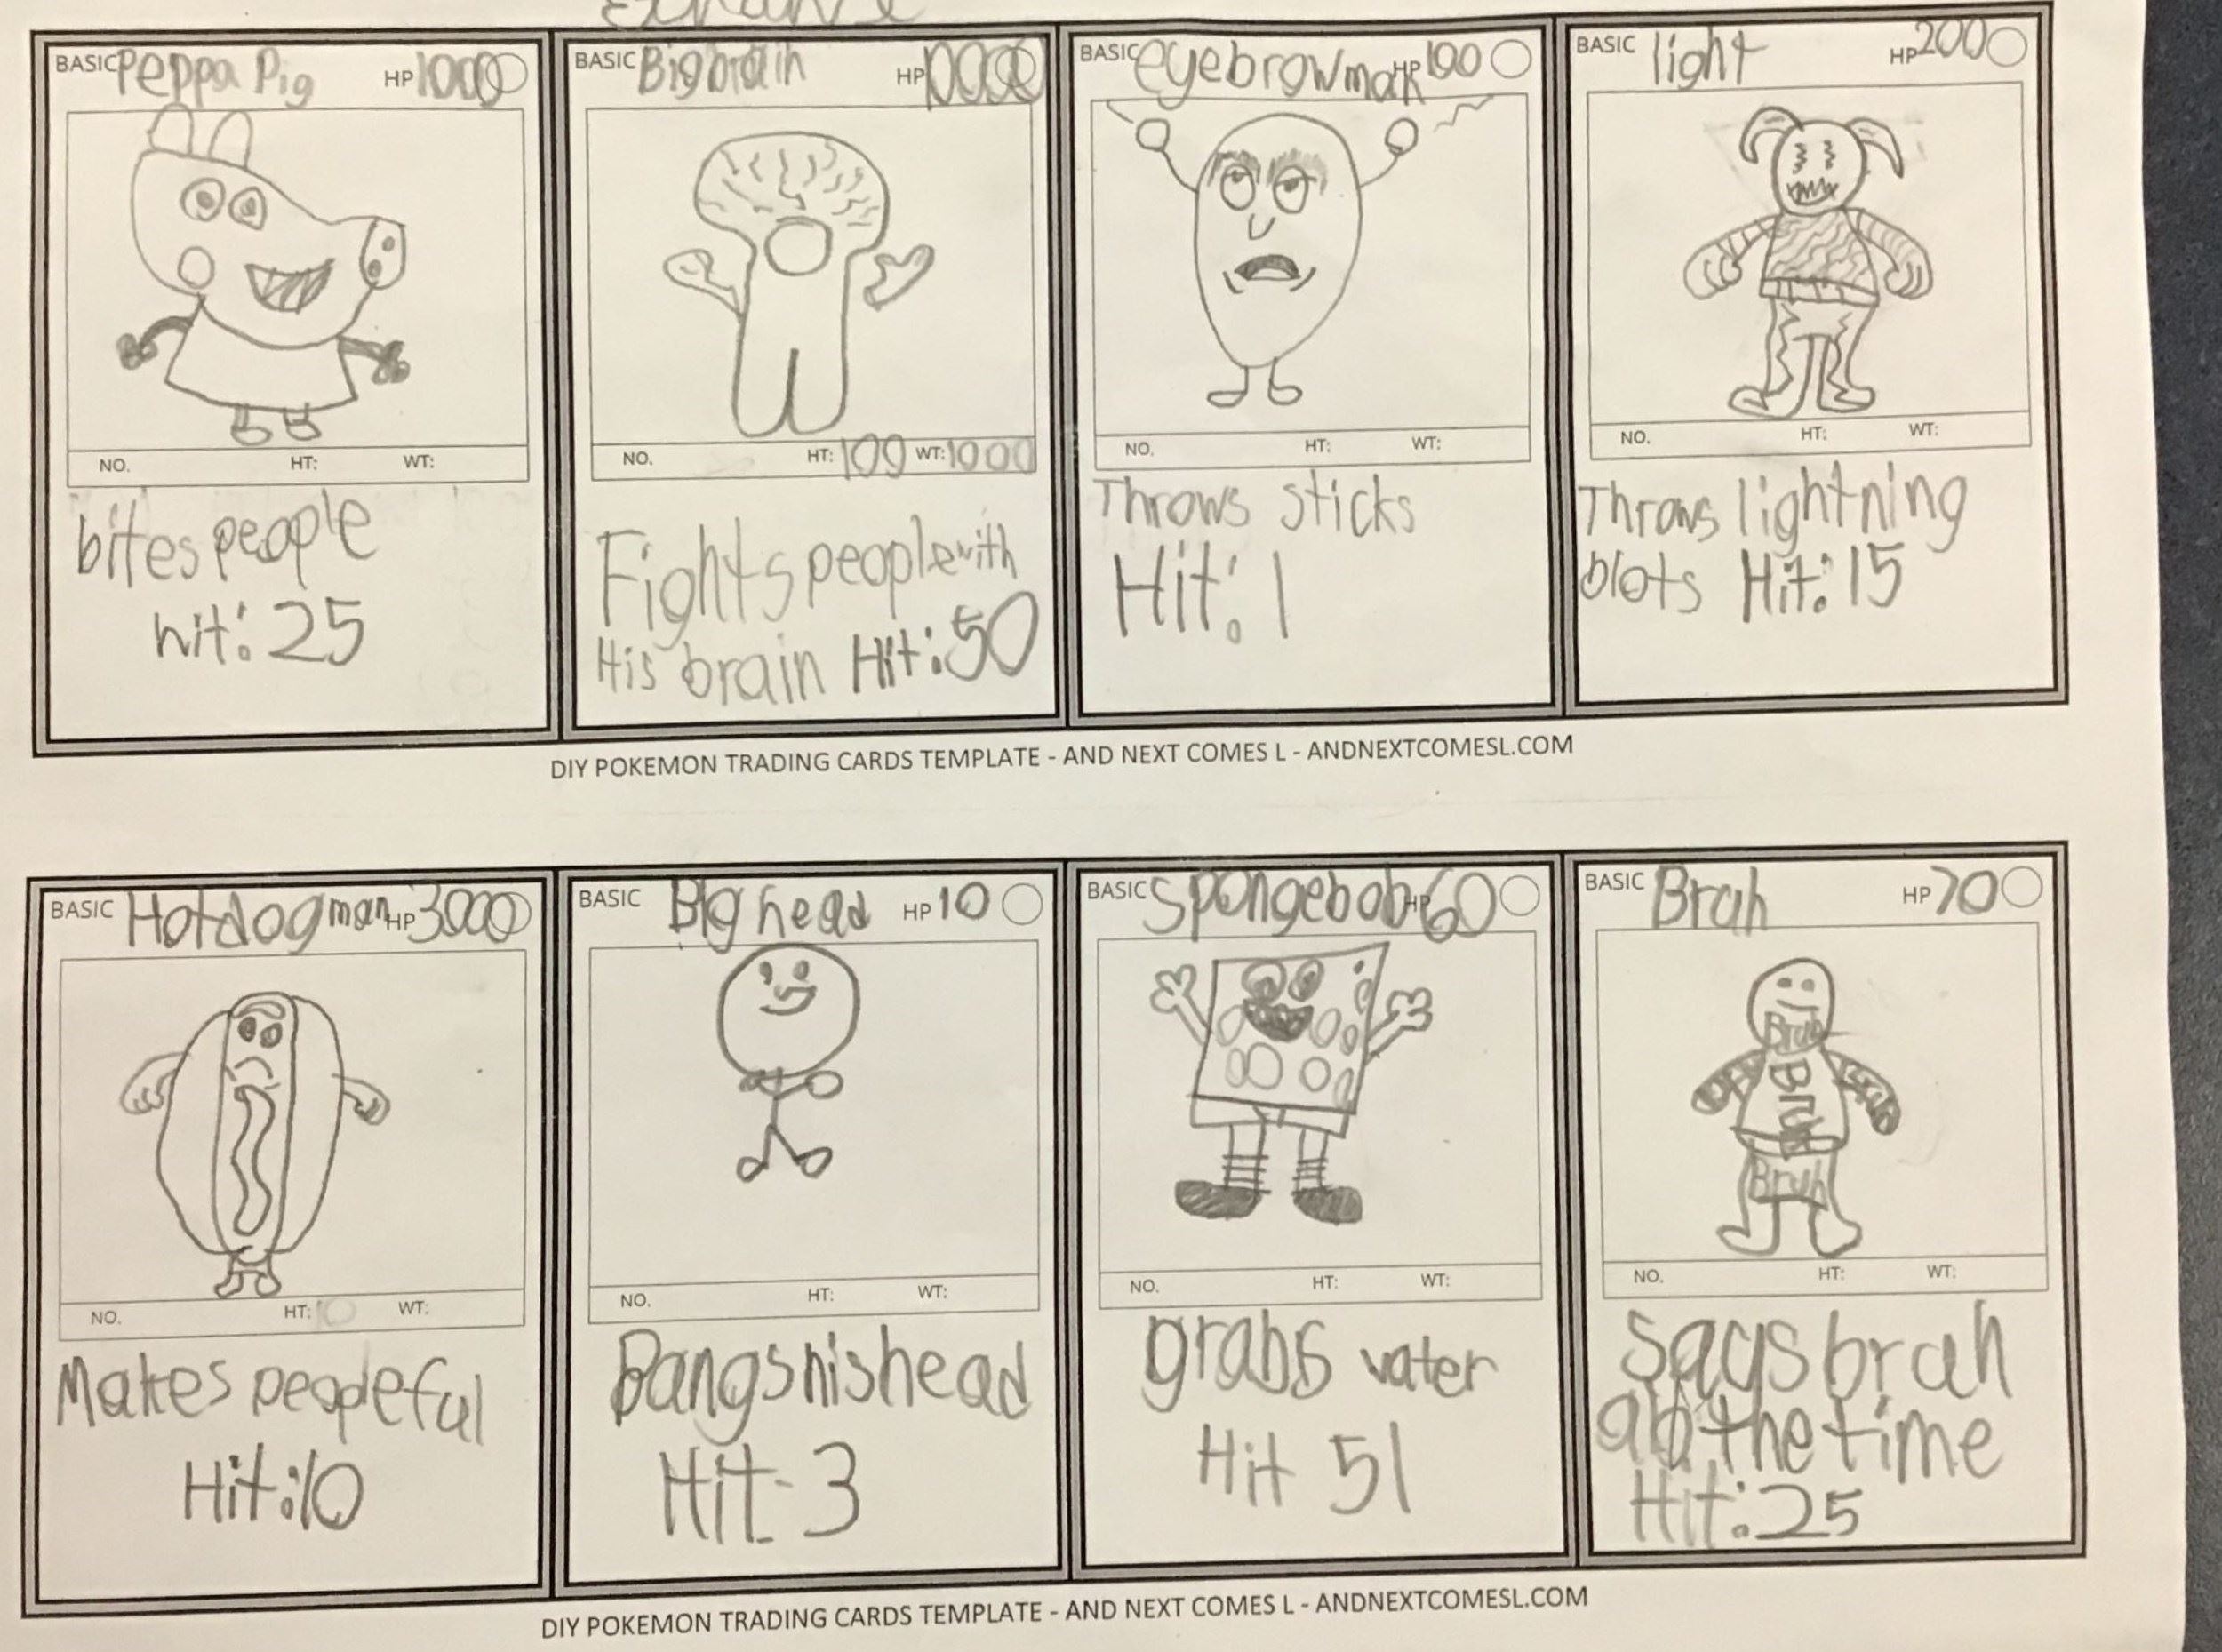 BASIC Peppa Pig HP 1000
NO. HT: WT:
bites people
hit: 25
BASIC Bigbrain HP 10000
NO. HT: 100 WT: 1000
Fights people with
His brain Hit: 50
BASIC eyebrowman HP 100
NO. HT: WT:
Throws sticks
Hit: 1
BASIC light HP 200
NO. HT: WT:
Throws lightning
blots Hit: 15
DIY POKEMON TRADING CARDS TEMPLATE - AND NEXT COMES L - ANDNEXTCOMESL.COM
BASIC Hotdog man HP 3000
NO. HT: 10 WT:
Makes people ful
Hit: 10
BASIC Big head HP 10
NO. HT: WT:
Bangs his head
Hit- 3
BASIC Spongebob HP 60
NO. HT: WT:
grabs water
Hit 51
BASIC Bruh HP 70
Bruh
Bruh
Bruh
NO. HT: WT:
says bruh
all the time
Hit: 25
DIY POKEMON TRADING CARDS TEMPLATE - AND NEXT COMES L - ANDNEXTCOMESL.COM